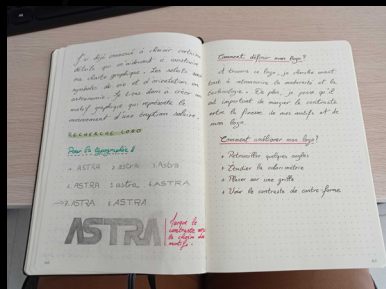 J'ai déjà commencé à choisir certains
détails qui m'aideront à construire
ma charte graphique. Les soleils sont
symboles de vie et d'
astronomie. Je tiens donc à créer un
motif graphique qui représente le
mouvement d'une éruption solaire.
RECHERCHE LOGO
Pour la typographie :
1. ASTRA 2. astra 3. Astra
4. ASTRA 5. astra 6. ASTRA
7. ASTRA 8. ASTRA
ASTRA
jusque le
contraste
le choix du
motif.
Comment définir mon logo ?
A travers ce logo, je cherche avant
tout à retranscrire la modernité et la
technologie. De plus, je pense qu'il
est important de marquer le contraste
entre la finesse de mes motifs et de
mon logo.
Comment améliorer mon logo ?
+ Retravailler quelques angles
+ Étudier la colorimétrie
+ Placer sur une grille
+ Voir le contraste de contre-forme